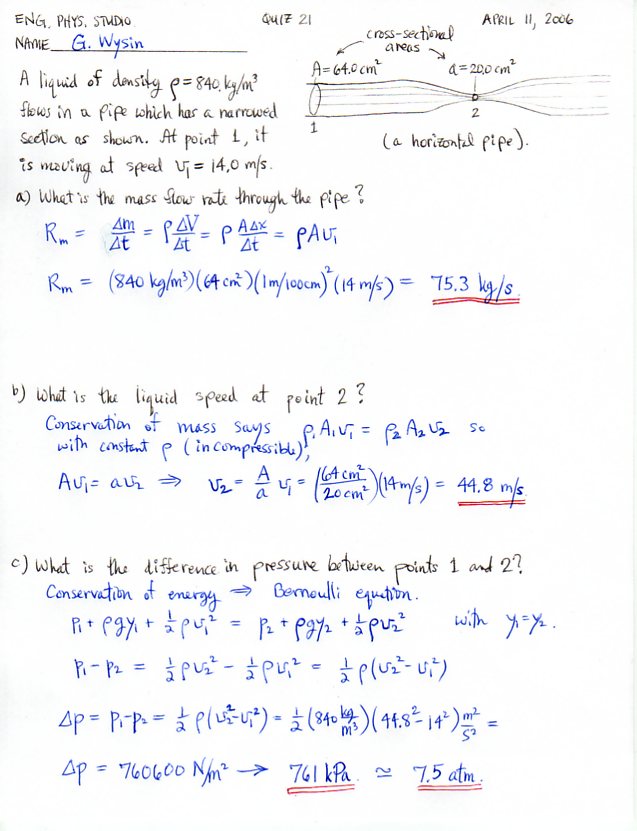 ENG. PHYS. STUDIO. QUIZ 21 APRIL 11, 2006
NAME G. Wysin
cross-sectional
areas
A=64.0 cm² a=20.0 cm²
1 2
(a horizontal pipe).
A liquid of density ρ=840. kg/m³
flows in a pipe which has a narrowed
section as shown. At point 1, it
is moving at speed v₁ = 14.0 m/s.
a) What is the mass flow rate through the pipe?
Rm = Δm/Δt = ρ ΔV/Δt = ρ AΔx/Δt = ρAv₁
Rm = (840 kg/m³)(64 cm²)(1m/100cm)²(14 m/s) = 75.3 kg/s.
b) What is the liquid speed at point 2?
Conservation of mass says ρ₁A₁v₁ = ρ₂A₂v₂ so
with constant ρ (incompressible),
Av₁ = av₂ ⇒ v₂ = A/a v₁ = (64 cm²/20 cm²)(14 m/s) = 44.8 m/s.
c) What is the difference in pressure between points 1 and 2?
Conservation of energy ⇒ Bernoulli equation.
p₁ + ρgy₁ + ½ρv₁² = p₂ + ρgy₂ + ½ρv₂² with y₁=y₂.
p₁ - p₂ = ½ρv₂² - ½ρv₁² = ½ρ(v₂² - v₁²)
Δp = p₁-p₂ = ½ρ(v₂²-v₁²) = ½(840 kg/m³)(44.8² - 14²) m²/s² =
Δp = 760600 N/m² → 761 kPa. ≃ 7.5 atm.